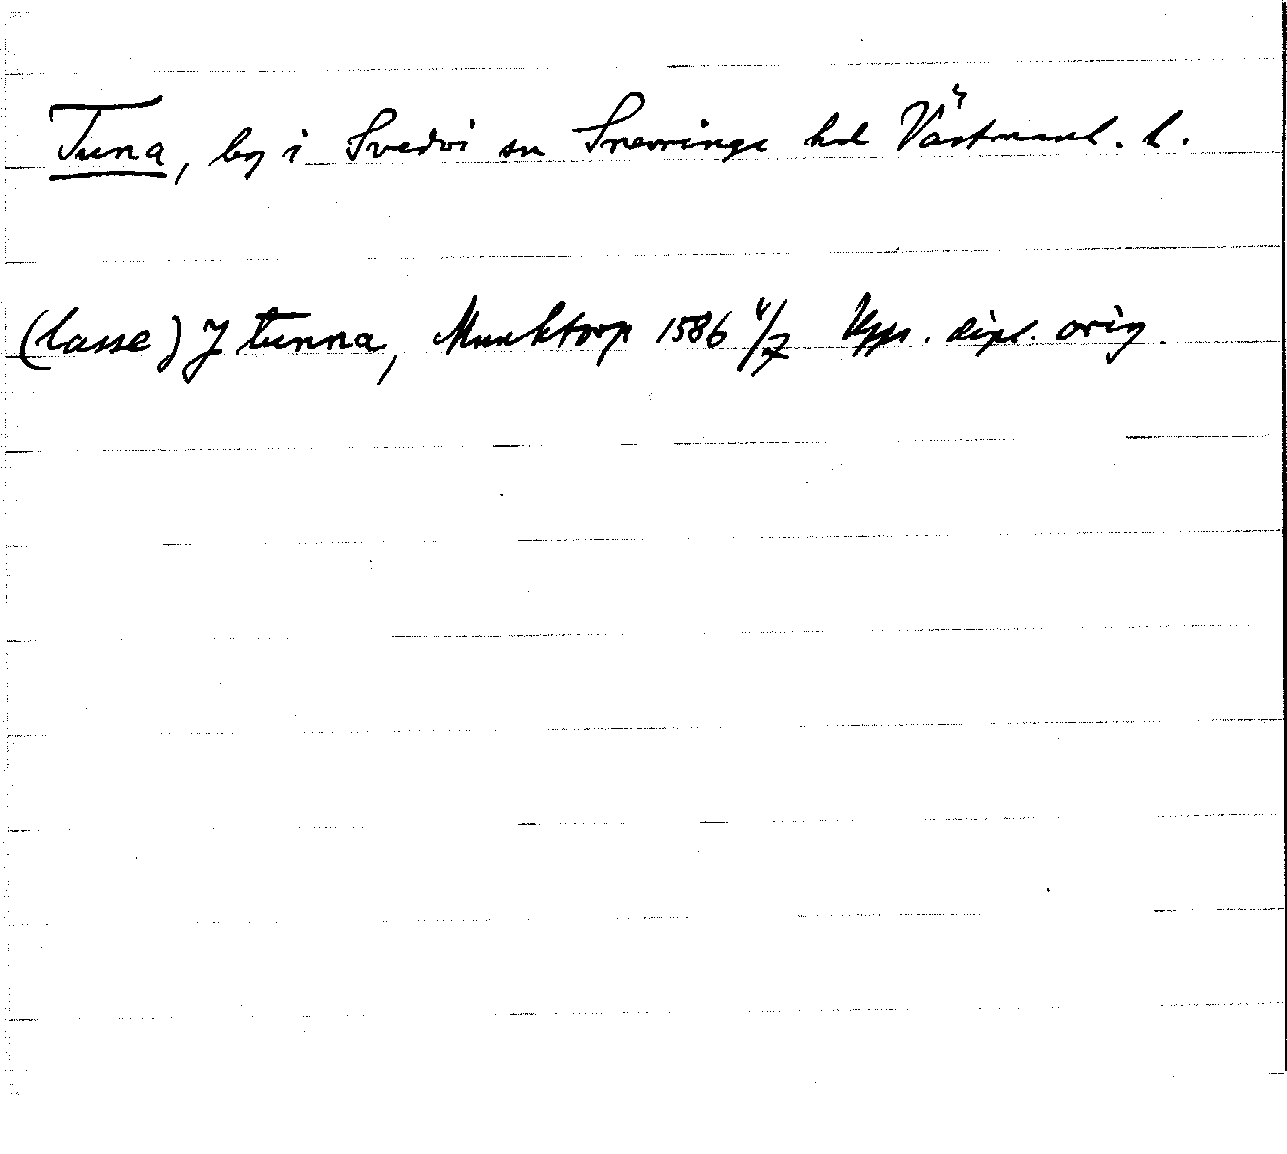 Tuna, by i Svedvi sn Snevringe hd Västmanl. l.
(lasse) J tunna, Munktorp 1586 4/7 Upps. dipl. orig.